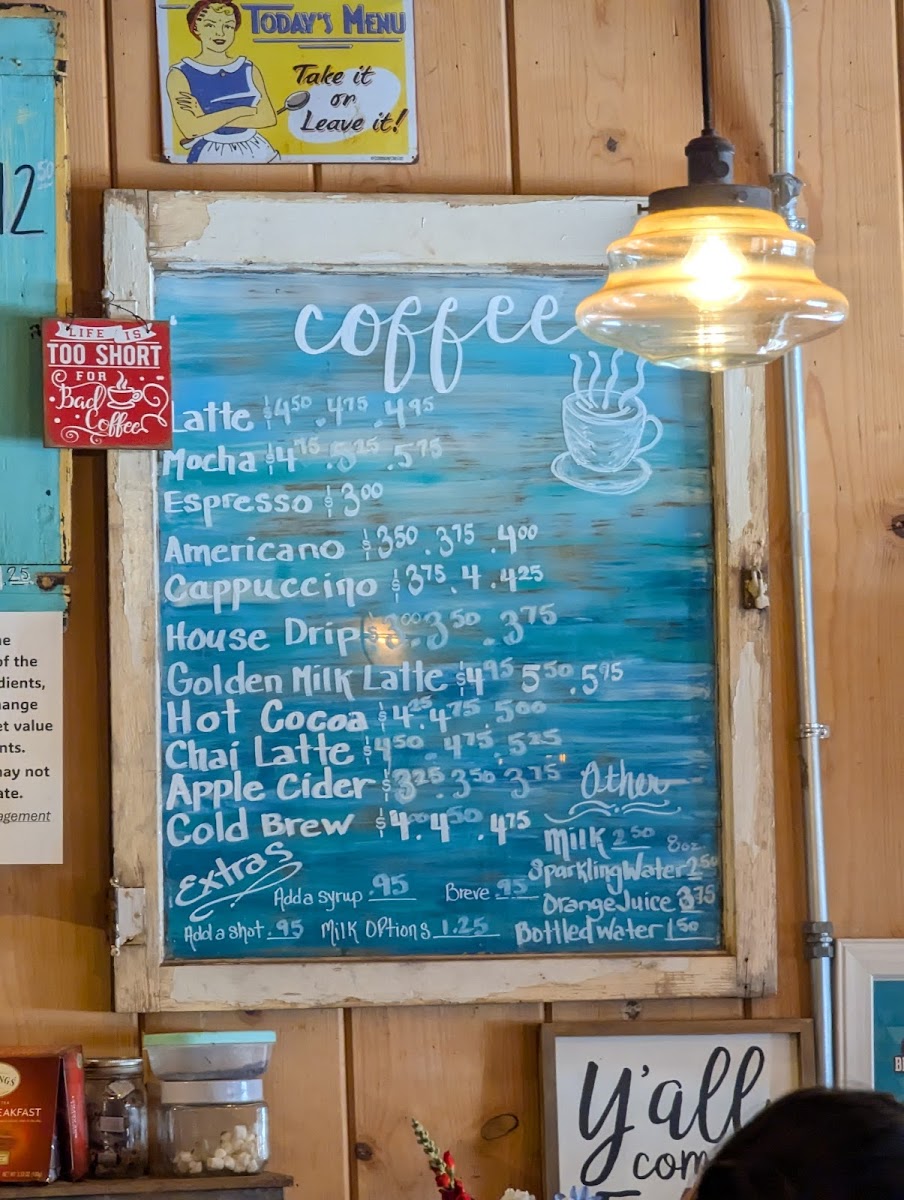 TODAY'S MENU
Take it
or
Leave it!
12 50
LIFE IS
TOO SHORT
FOR
Bad
Coffee
coffee
Latte $4 50 . 4 75 . 4 95
Mocha $4 75 . 5 25 . 5 75
Espresso $3 00
Americano $3 50 . 3 75 . 4 00
Cappuccino $3 75 . 4 . 4 25
House Drip $3 00 . 3 50 . 3 75
Golden Milk Latte $4 95 5 50 . 5 95
Hot Cocoa $4 25 . 4 75 . 5 00
Chai Latte $4 50 . 4 75 . 5 25
Apple Cider $3 25 . 3 50 . 3 75
Cold Brew $4 . 4 50 . 4 75
Extras
Add a syrup .95
Breve .95
Add a shot .95
Milk Options 1.25
Other
Milk 2 50 8oz
Sparkling Water 2 50
Orange Juice 3 75
Bottled Water 1 50
.25
of the
dients,
ange
et value
nts.
may not
ate.
agement
EAKFAST
Y'all
com